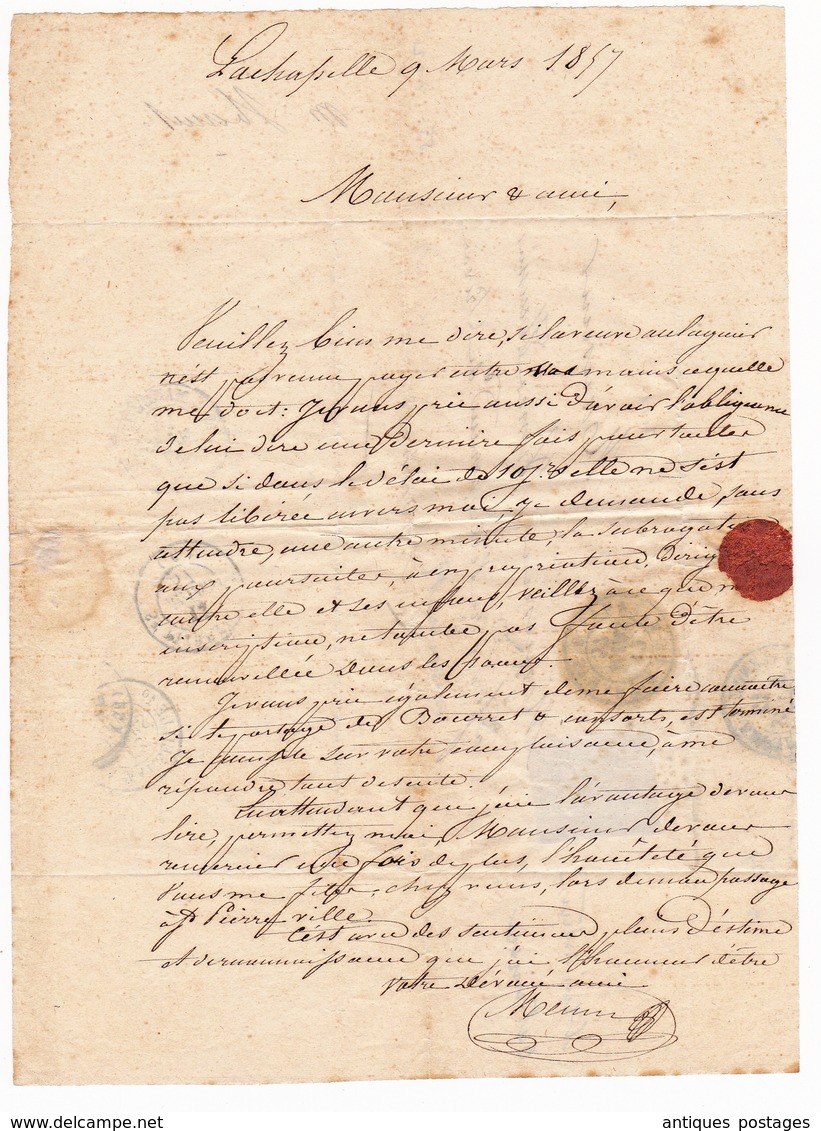 Lachapelle 9 Mars 1857
Monsieur & ami,
Veuillez bien me dire, si la veuve aulagnier
n'est pas venue payer entre vos mains ce quelle
me doit: Je vous prie aussi d'avoir l'obligeance
de lui dire une dernière fois pour toutes
que si dans le délai de 10 jrs elle ne s'est
pas libérée envers moi, je demande, sans
attendre, une autre minute, la subrogation
aux poursuites, en expropriation, dirigées
contre elle et ses enfans, veillez à ce que mon
inscription, ne tombe pas faute d'être
renouvellée dans les jours.
Je vous prie également de me faire connaitre
si le partage de Bourret & consorts, est terminé
Je compte sur votre complaisance, à me
répondre tout de suite.
En attendant que j'aie l'avantage de vous
lire, permettez moi, Monsieur de vous
remercier une fois de plus, l'honêteté que
vous me fites, chez vous, lors de mon passage
à St Pierreville.
C'est avec des sentimens pleins d'estime
et de reconnaissance que j'ai l'honneur d'être
votre dévoué ami
antiques postages